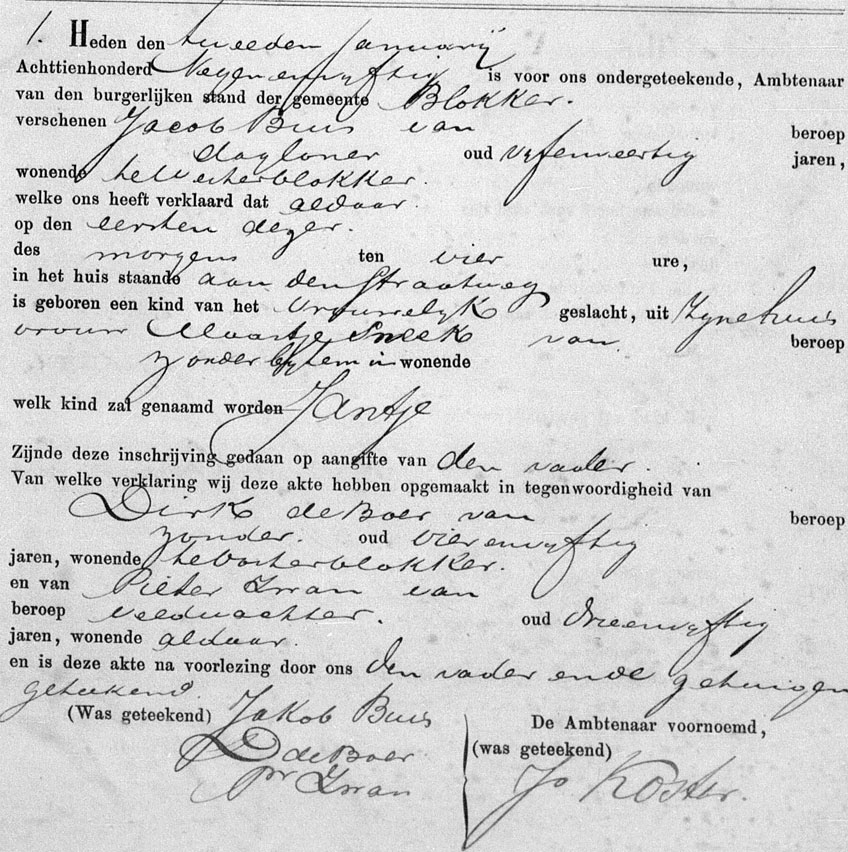 1. Heden den tweeden Januarij
Achttienhonderd Negenenvyftig is voor ons ondergeteekende, Ambtenaar
van den burgerlijken stand der gemeente Blokker.
verschenen Jacob Buis van beroep
dagloner oud vyfenveertig jaren,
wonende te Westerblokker.
welke ons heeft verklaard dat aldaar.
op den eersten dezer.
des morgens ten vier ure,
in het huis staande aan den Straatweg
is geboren een kind van het Vrouwelyk geslacht, uit Zyne huis
vrouw Maartje Sneek van beroep
zonder by hem in wonende
welk kind zal genaamd worden Jantje
Zijnde deze inschrijving gedaan op aangifte van den vader.
Van welke verklaring wij deze akte hebben opgemaakt in tegenwoordigheid van
Dirk de Boer van beroep
zonder. oud vierenvyftig
jaren, wonende te Oosterblokker.
en van Pieter Zwan van
beroep veldwachter. oud drieenvyftig
jaren, wonende aldaar.
en is deze akte na voorlezing door ons den vader ende getuigen
geteekend.
(Was geteekend) Jakob Buis De Ambtenaar voornoemd,
D de Boer (was geteekend)
Pr Zwan Jo Koster.